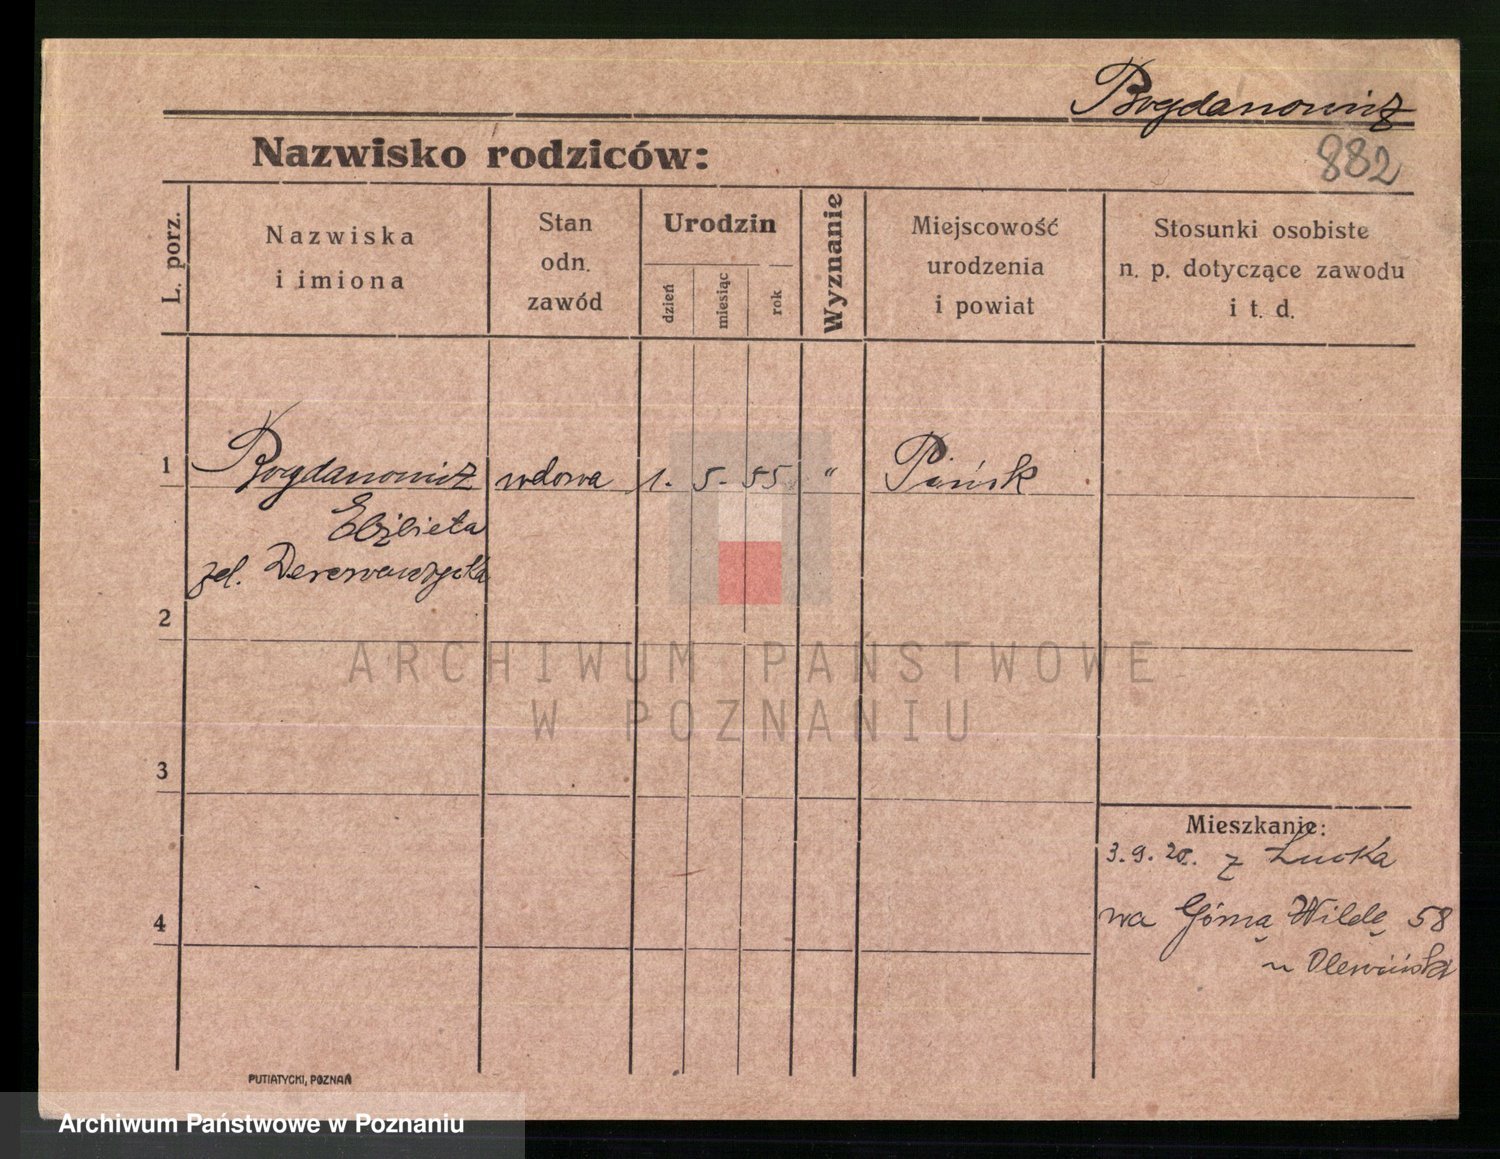 Bogdanowicz
882
Nazwisko rodziców:
L. porz.
Nazwiska
i imiona
Stan
odn.
zawód
Urodzin
dzień
miesiąc
rok
Wyznanie
Miejscowość
urodzenia
i powiat
Stosunki osobiste
n. p. dotyczące zawodu
i t. d.
1 Bogdanowicz wdowa 1. 5. 55 " Pińsk
Elżbieta
2
3
4
Mieszkanie:
3. 9. 20. z Łucka
na Górną Wildę 58
ARCHIWUM PAŃSTWOWE
W POZNANIU
PUTIATYCKI, POZNAŃ
Archiwum Państwowe w Poznaniu